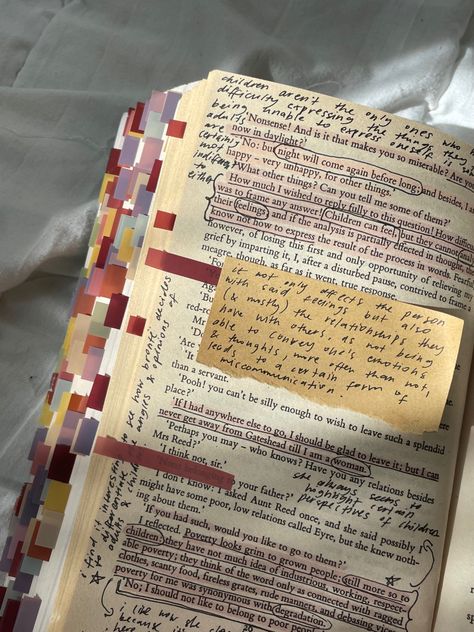 children aren't the only ones who
difficulty expressing the things they
being unable to express oneself
adults
are
certainly
not
indifferent
to
either
'Nonsense! And is it that makes you so miserable? Are
now in daylight?'
'No: but night will come again before long: and besides, I
happy – very unhappy, for other things.'
'What other things? Can you tell me some of them?'
How much I wished to reply fully to this question! How diffi
was to frame any answer! Children can feel, but they cannot
their feelings; and if the analysis is partially effected in thought,
know not how to express the result of the process in words. Fearful
however, of losing this first and only opportunity of relieving
grief by imparting it, I, after a disturbed pause, contrived to frame a
meagre, though, as far as it went, true response.
it not only affects the person
with said feelings but also
(& mostly) the relationships they
have with others, as not being
able to convey one's emotions
& thoughts, more often than not,
leads to a certain form of
miscommunication.
than a servant.
'Pooh! you can't be silly enough to wish to leave such a splendid
place?'
'If I had anywhere else to go, I should be glad to leave it; but I can
never get away from Gateshead till I am a woman.'
'Perhaps you may – who knows? Have you any relations besides
Mrs Reed?'
'I think not, sir.'
your father?'
'I don't know: I asked Aunt Reed once, and she said possibly I
might have some poor, low relations called Eyre, but she knew noth-
ing about them.'
she always seems to
highlight certain
perspectives of children
'If you had such, would you like to go to them?'
I reflected. Poverty looks grim to grown people; still more so to
children: they have not much idea of industrious, working, respect-
able poverty; they think of the word only as connected with ragged
clothes, scanty food, fireless grates, rude manners, and debasing vices:
poverty for me was synonymous with degradation.
'No; I should not like to belong to poor people,'
i find it interesting to see how brontë decides
to differentiate the angles & opinions of
adults & children
i like how she
because
here